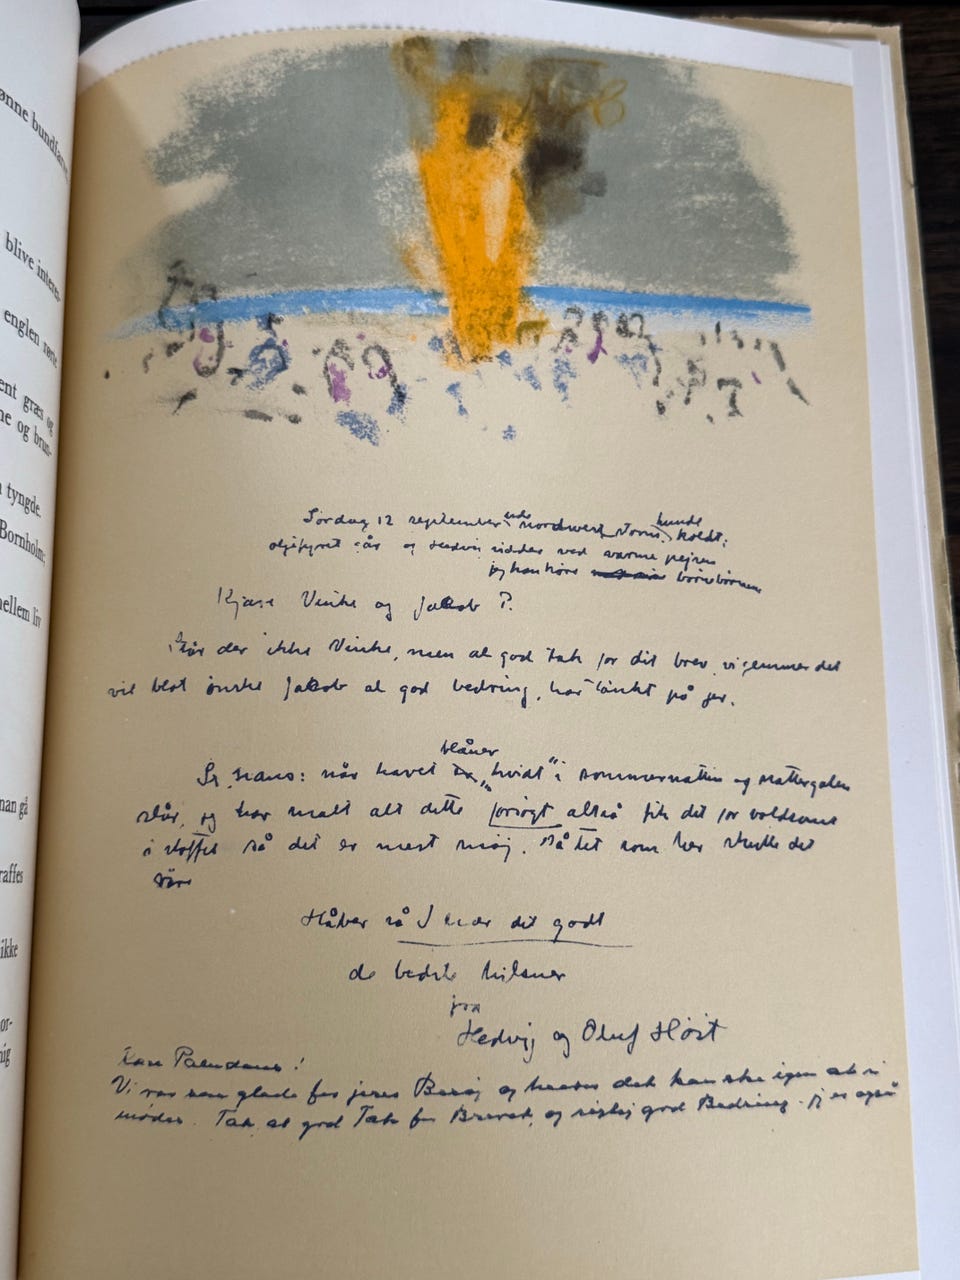 ønne bundfarver
blive interes-
englen rønt
ent græs og
ne og brun-
tyngde.
Bornholm;
mellem liv
man gå
raffes
ikke
or-
nig
Lördag 12 september ude nordvest storm, hunde koldt;
oljefyret går og Hedvig sidder ved varme pejsen
jeg kan höre börnebörnene
Kjære Vinke og Jakob P.
står der ikke Vinke, men al god tak for dit brev, vi gemmer det
vil blot önske Jakob al god bedring, har tänkt på jer.
blåner
når havet "hvidt" i sommernatten og nattergalen
slår, jeg har malt alt dette forsøgt altså fik det for voldsomt
i stoffet så det er mest møj. Så let som her skulle det
väre
Håber så I har det godt
de bedste hilsner
fra
Hedvig og Oluf Höst
Kære Paludans!
Vi var saa glade for jeres Besøg og haaber det kan ske igen at vi
mødes. Tak, al god Tak for Brevet, og rigtig god Bedring. også